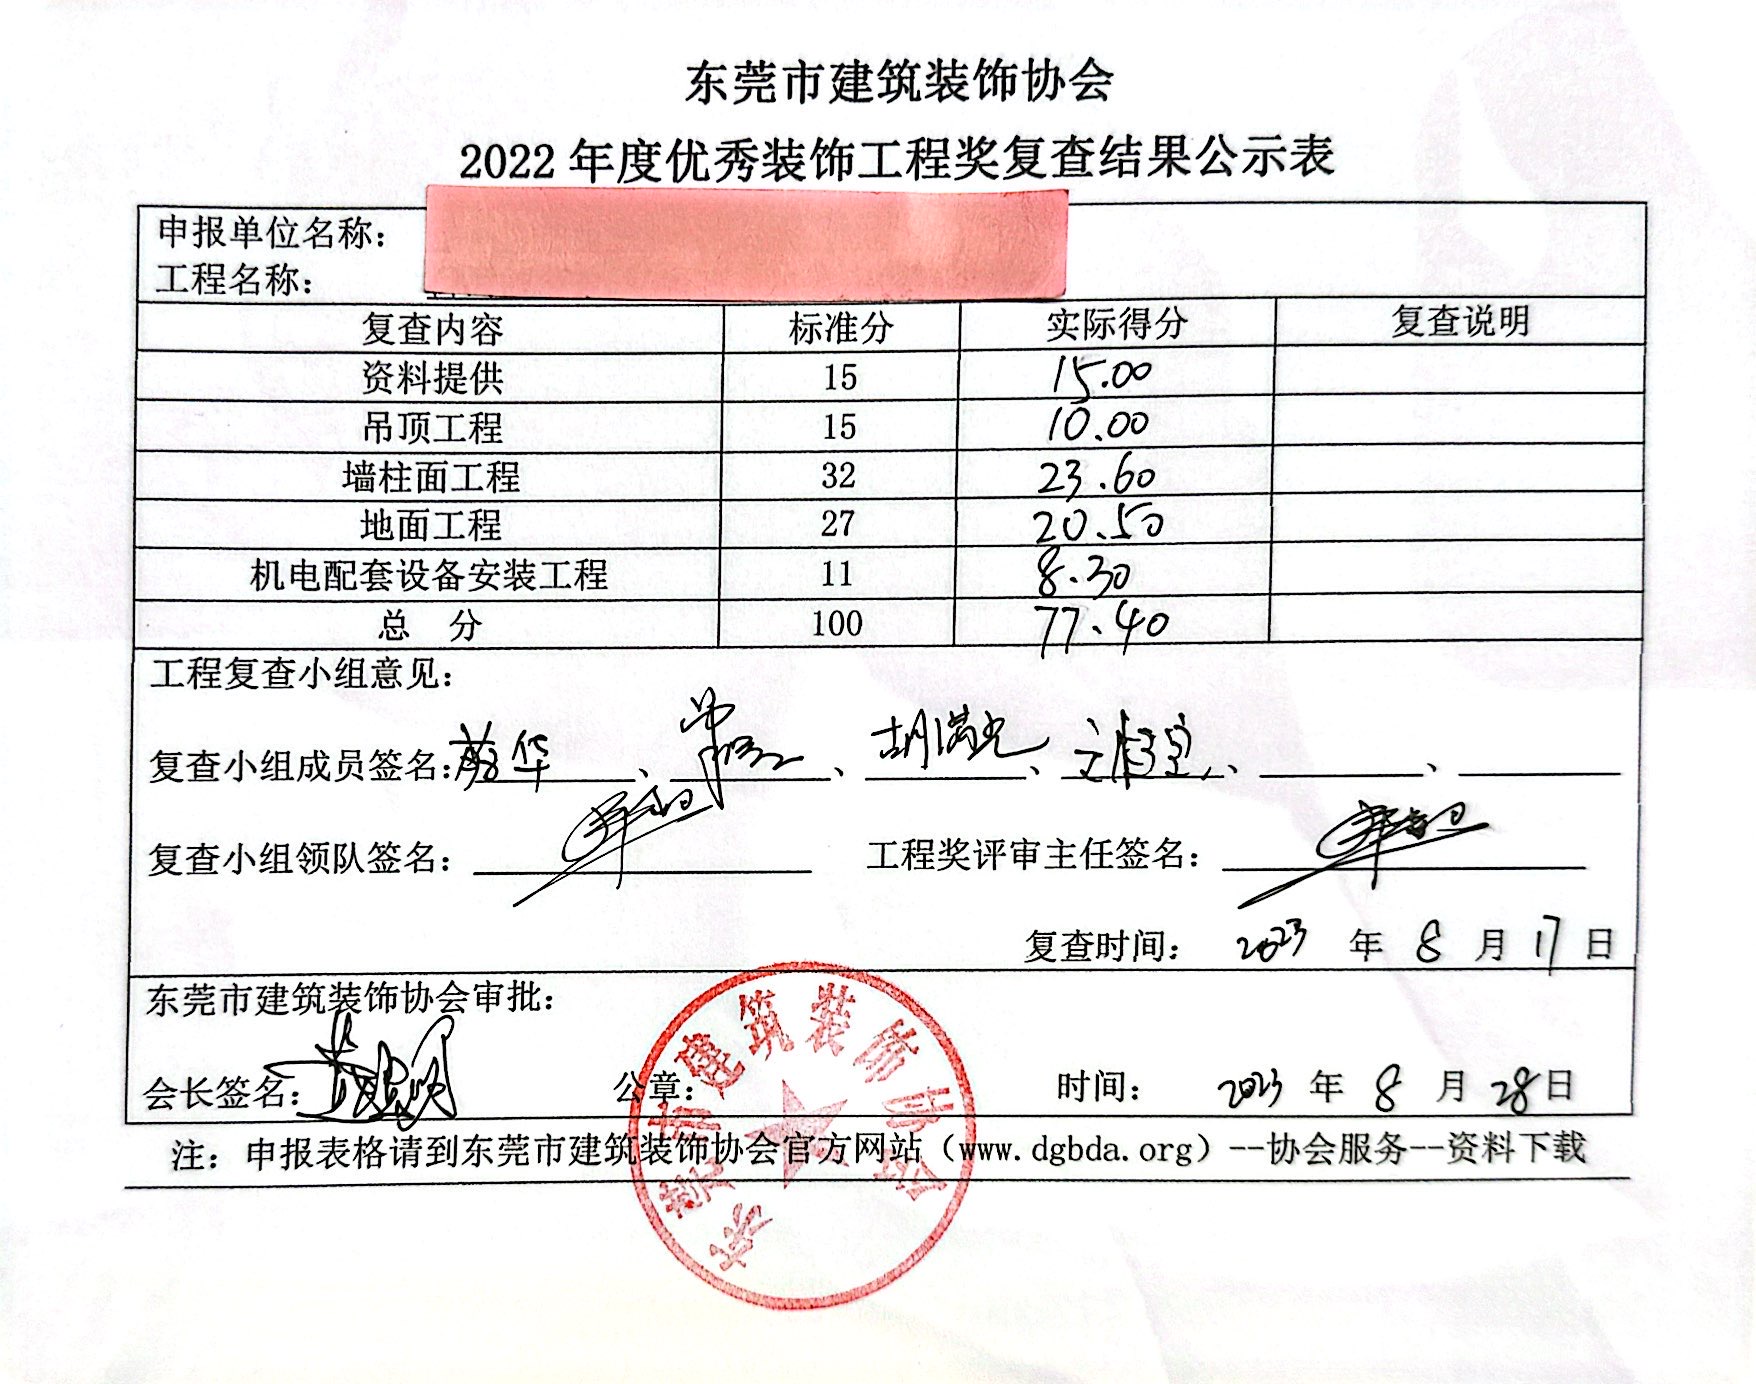 东莞市建筑装饰协会
2022 年度优秀装饰工程奖复查结果公示表
申报单位名称：
工程名称：
复查内容 标准分 实际得分 复查说明
资料提供 15 15.00
吊顶工程 15 10.00
墙柱面工程 32 23.60
地面工程 27 20.50
机电配套设备安装工程 11 8.30
总 分 100 77.40
工程复查小组意见：
复查小组成员签名：、 、胡满光、 、 、
复查小组领队签名： 工程奖评审主任签名：
复查时间： 2023 年 8 月 17 日
东莞市建筑装饰协会审批：
会长签名： 公章： 时间： 2023 年 8 月 28 日
东莞市建筑装饰协会
注：申报表格请到东莞市建筑装饰协会官方网站（www.dgbda.org）--协会服务--资料下载